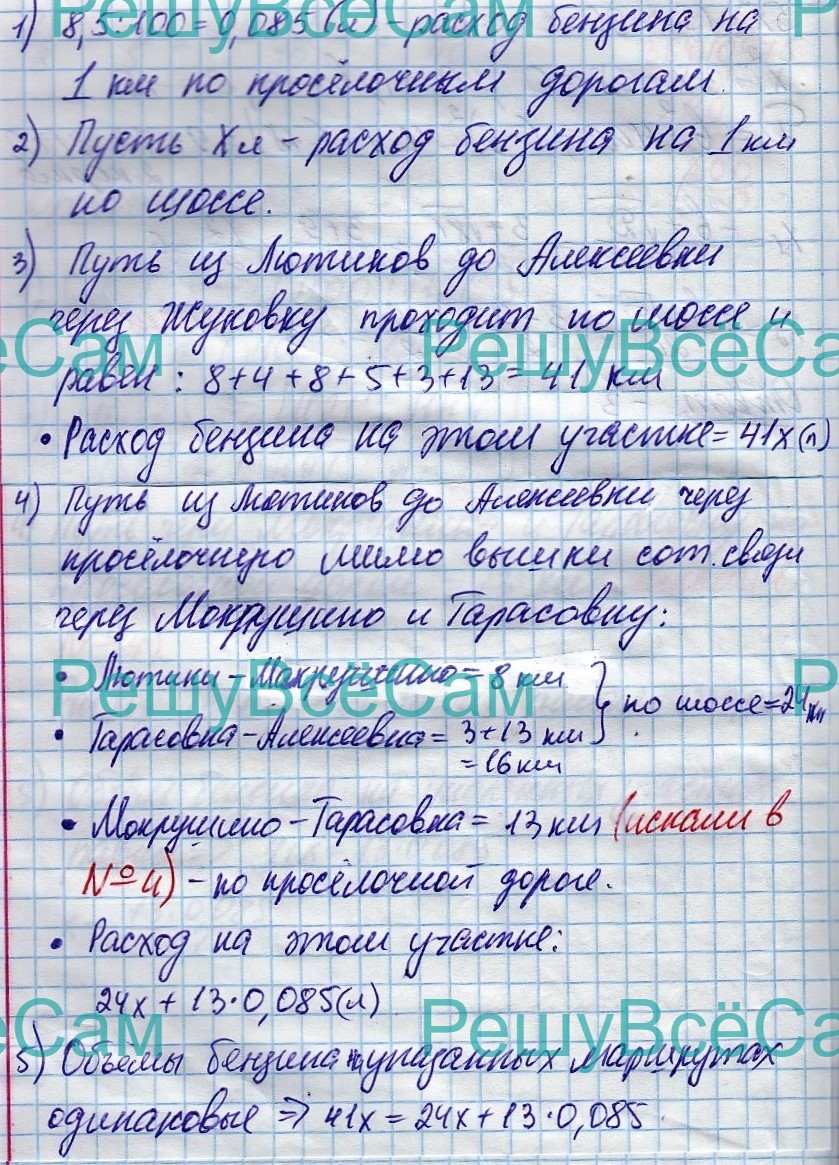 РешуВсёСам
1) 8,5:100=0,085 (л) - расход бензина на
1 км по просёлочным дорогам.
2) Пусть Хл - расход бензина на 1 км
по шоссе.
3) Путь из Лютиков до Алексеевки
через Жуковку проходит по шоссе и
ёСам РешуВсёСам
равен: 8+4+8+5+3+13=41 км
• Расход бензина на этом участке=41х(л)
4) Путь из Лютиков до Алексеевки через
просёлочную мимо вышки сот. связи
через Мокрушино и Тарасовку:
• Лютики-Мокрушино=8 км } по шоссе=24км
РешуВсёСам
• Тарасовка-Алексеевка= 3+13 км
=16км
• Мокрушино-Тарасовка= 13км (искали в
№4) - по просёлочной дороге.
• Расход на этом участке:
24х+13·0,085(л)
ёСам РешуВсёСам
5) Объёмы бензина на указанных маршрутах
одинаковые => 41х=24х+13·0,085